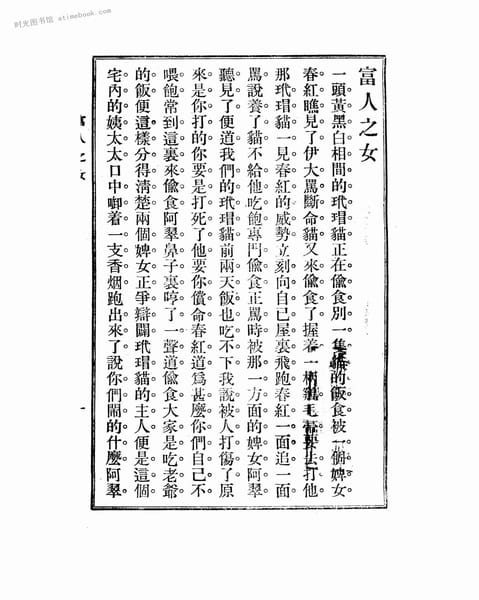 时光图书馆 atimebook.com
富人之女
一頭黃黑白相間的玳瑁貓正在偸食別一隻的飯食被一個婢女
春紅瞧見了伊大罵斷命貓又來偸食了握着一柄雞毛去打他
那玳瑁貓一見春紅的威勢立刻向自己屋裏飛跑春紅一面追一面
罵說養了貓不給他吃飽專門偸食正罵時被那一方面的婢女阿翠
聽見了便道我們的玳瑁貓前兩天飯也吃不下我說被人打傷了原
來是你打的你要是打死了他要你償命春紅道爲甚麼你們自己不
喂飽常到這裏來偸食阿翠鼻子裏哼了一聲道偸食大家是吃老爺
的飯便這樣分得淸楚兩個婢女正爭辯鬪玳瑁貓的主人便是這個
宅內的姨太太口中啣着一支香烟跑出來了說你們鬧的什麼阿翠
富人之女
一